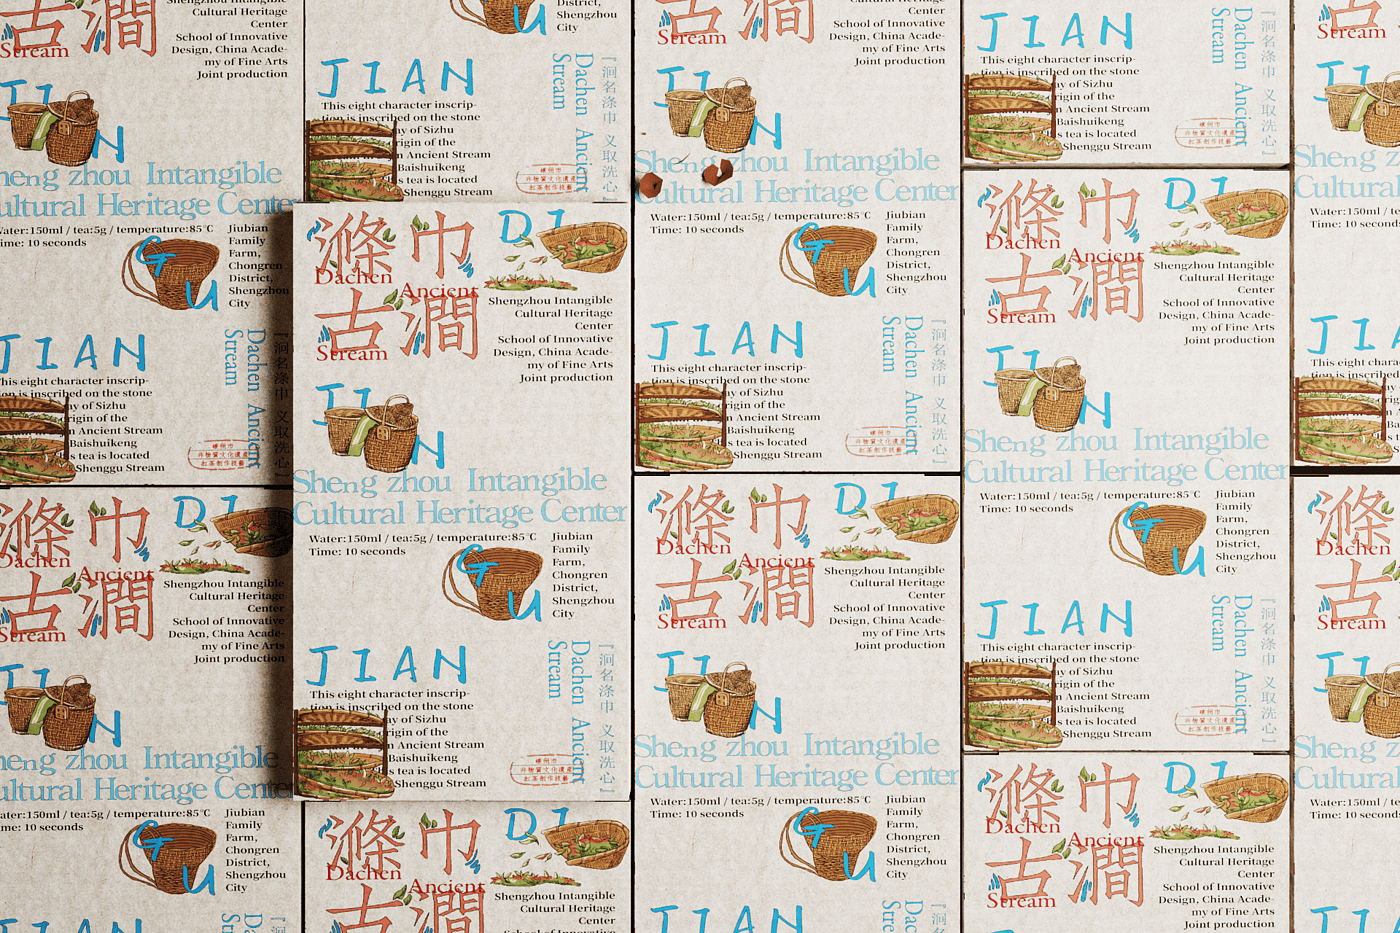 滌巾
DI
Dachen
Ancient
古澗
Stream
Shengzhou Intangible
Cultural Heritage
Center
School of Innovative
Design, China Acade-
my of Fine Arts
Joint production
JI
N
Sheng zhou Intangible
Cultural Heritage Center
Water:150ml / tea:5g / temperature:85℃
Time: 10 seconds
Jiubian
Family
Farm,
Chongren
District,
Shengzhou
City
G
U
JIAN
This eight character inscrip-
tion is inscribed on the stone
ay of Sizhu
rigin of the
n Ancient Stream
Baishuikeng
s tea is located
Shenggu Stream
Dachen Ancient
Stream
『涧名涤巾 义取洗心』
嵊州市
非物質文化遺產
紅茶制作技藝